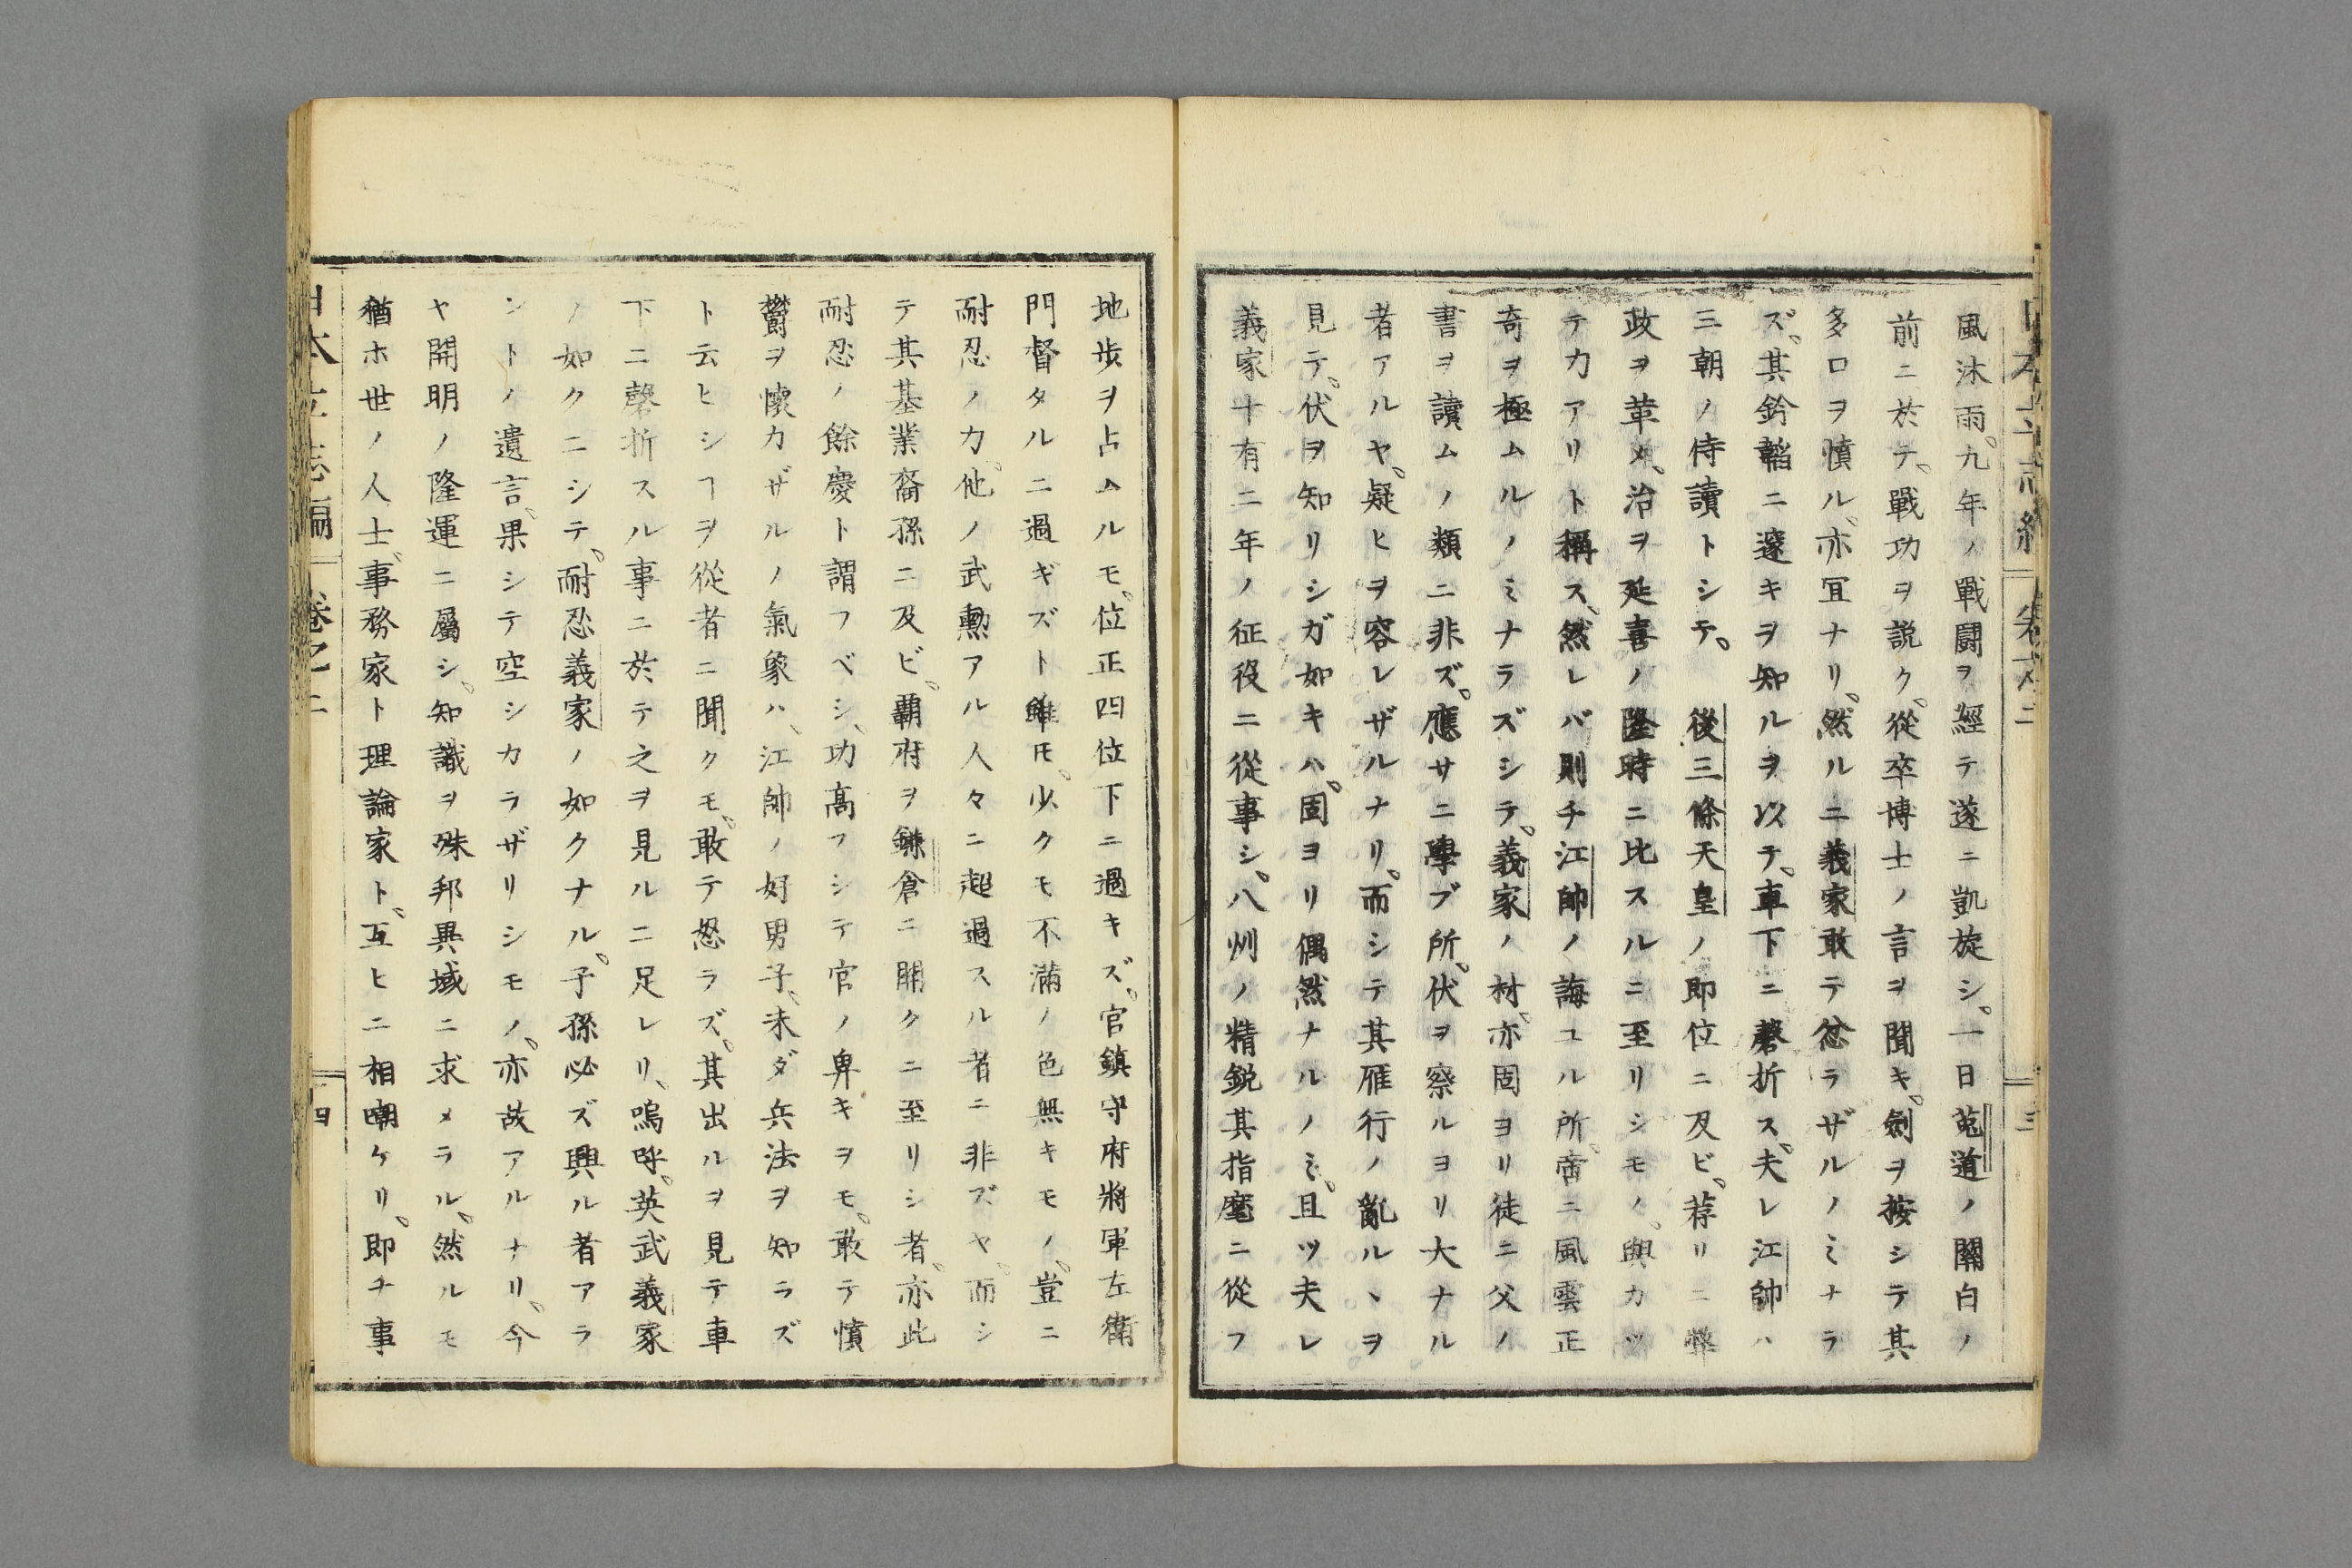 風沐雨、九年ノ戰鬪ヲ經テ遂ニ凱旋シ、一日菟道ノ關白ノ
前ニ於テ、戰功ヲ説ク、從卒博士ノ言ヲ聞キ、劍ヲ按シテ其
多口ヲ憤ル、亦冝ナリ、然ルニ義家敢テ忿ラザルノミナラ
ズ、其鈐韜ニ邃キヲ知ルヲ以テ、車下ニ磬折ス、夫レ江帥ハ
三朝ノ侍讀トシテ、後三條天皇ノ即位ニ及ビ、荐リニ弊
政ヲ革メ、治ヲ延喜ノ隆時ニ比スルニ至リシモノ、與カツ
テカアリト稱ス、然レバ則チ江帥ノ誨ユル所、啻ニ風雲正
奇ヲ極ムルノミナラズシテ、義家ノ材、亦固ヨリ徒ニ父ノ
書ヲ讀ムノ類ニ非ズ、應サニ學ブ所、伏ヲ察ルヨリ大ナル
者アルヤ、疑ヒヲ容レザルナリ、而シテ其雁行ノ亂ルヽヲ
見テ、伏ヲ知リシガ如キハ、固ヨリ偶然ナルノミ、且ツ夫レ
義家十有二年ノ征役ニ從事シ、八州ノ精鋭其指麾ニ從フ
日本立志編 卷之二 三
地歩ヲ占ムルモ、位正四位下ニ過キズ、官鎮守府將軍左衛
門督タルニ過ギズト雖モ、少クモ不滿ノ色無キモノ、豈ニ
耐忍ノ力、他ノ武勲アル人々ニ超過スル者ニ非ズヤ、而シ
テ其基業裔孫ニ及ビ、覇府ヲ鎌倉ニ開クニ至リシ者、亦此
耐忍ノ餘慶ト謂フベシ、功高フシテ官ノ卑キヲモ、敢テ憤
欝ヲ懷カザルノ氣象ハ、江帥ノ好男子、未ダ兵法ヲ知ラズ
ト云ヒシヿヲ從者ニ聞クモ、敢テ怒ラズ、其出ルヲ見テ車
下ニ磬折スル事ニ於テ之ヲ見ルニ足レリ、嗚呼、英武義家
ノ如クニシテ、耐忍義家ノ如クナル、子孫必ズ興ル者アラ
ントノ遺言、果シテ空シカラザリシモノ、亦故アルナリ、今
ヤ開明ノ隆運ニ屬シ、知識ヲ殊邦異域ニ求メラル、然ルモ
猶ホ世ノ人士、事務家ト理論家ト、互ヒニ相嘲ケリ、即チ事
日本立志編 卷之二 四